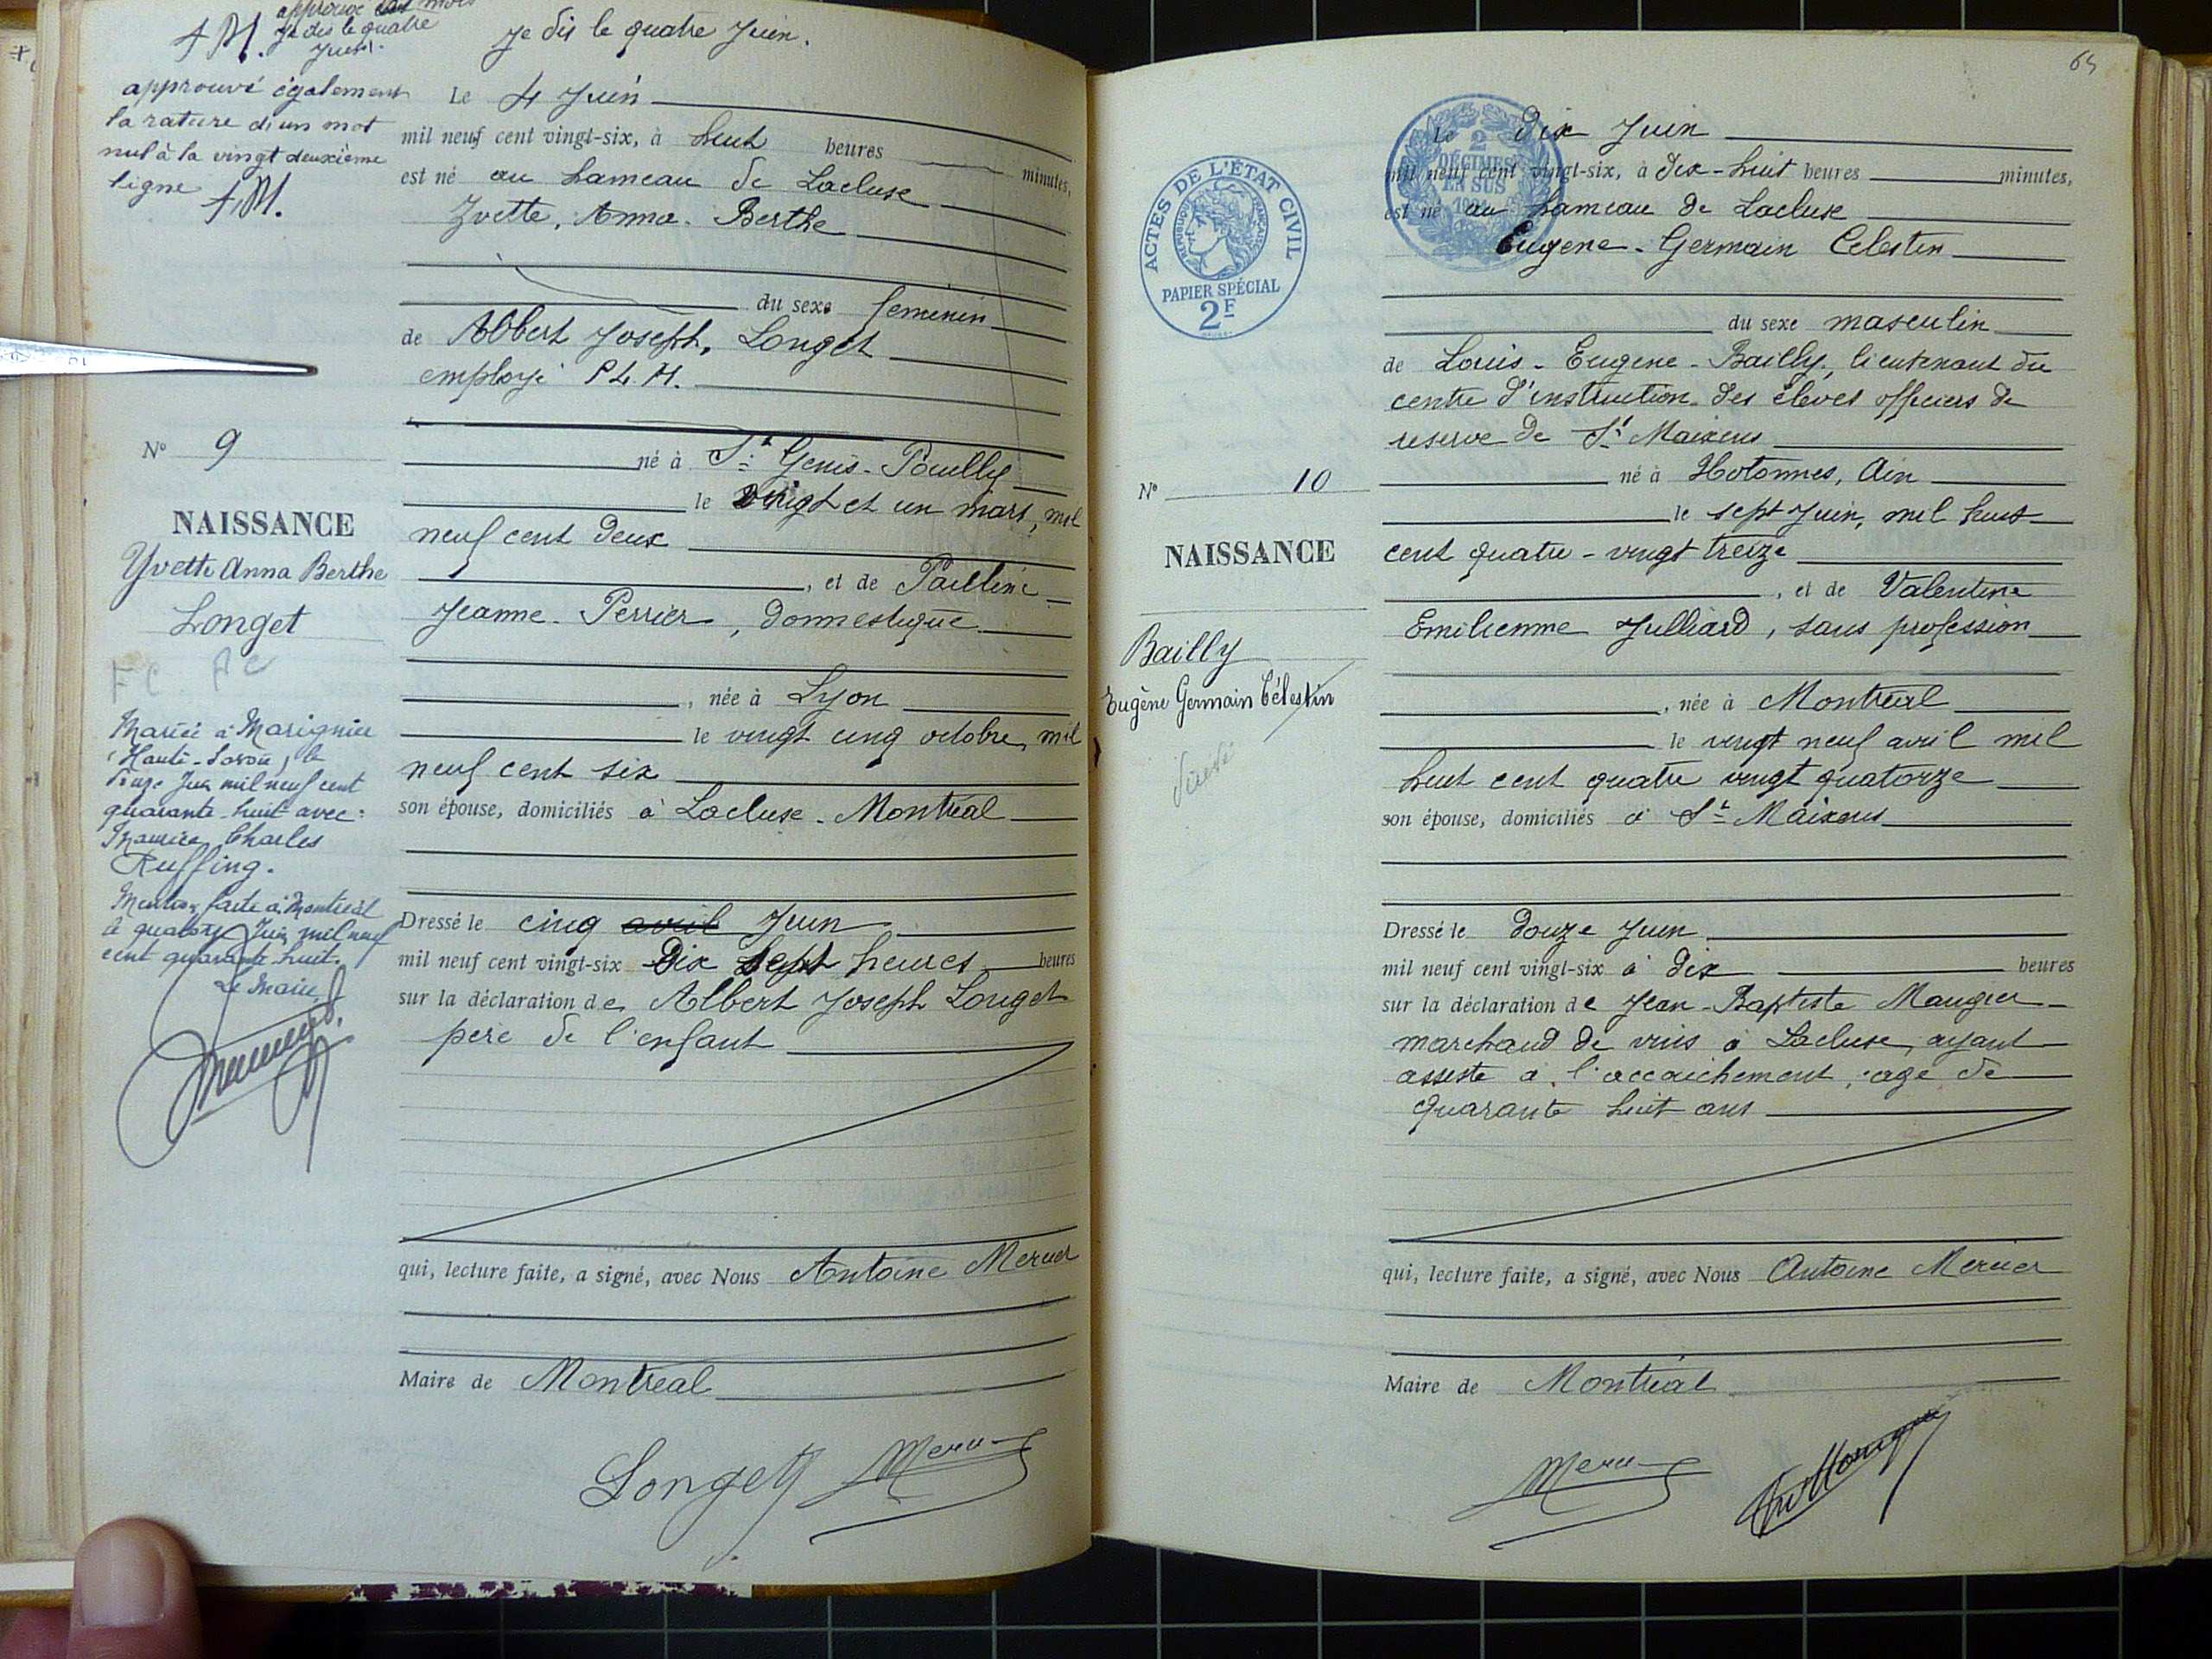 approuvé ces mots
je dis le quatre
Juin.
A M.
je dis le quatre Juin.
approuvé également
la rature d'un mot
nul à la vingt deuxième
ligne A.M.
Le 4 Juin
mil neuf cent vingt-six, à huit heures minutes,
est né au hameau de Lacluse
Yvette, Anna. Berthe
du sexe féminin
de Albert Joseph, Longet
employé P L. M.
né à St Genis-Pouilly
le vingt et un mars, mil
neuf cent deux
, et de Pauline
Jeanne. Perrier, domestique
, née à Lyon
le vingt cinq octobre, mil
neuf cent six
son épouse, domiciliés à Lacluse. Montréal
Dressé le cinq avril Juin
mil neuf cent vingt-six Dix sept heures heures
sur la déclaration de Albert Joseph Longet
père de l'enfant
qui, lecture faite, a signé, avec Nous Antoine Mercier
Maire de Montréal
Longet Mercier
No 9
NAISSANCE
Yvette Anna Berthe
Longet
FC FC
Mariée à Marignier
(Haute-Savoie) le
Juin mil neuf cent
quarante-huit avec:
Maurice Charles
Ruffing.
Mention faite à Montréal
le quatorze Juin mil neuf
cent quarante-huit.
Le Maire,
65
ACTES DE L'ÉTAT CIVIL
RÉPUBLIQUE FRANÇAISE
PAPIER SPÉCIAL
2F
2
DÉCIMES
EN SUS
Le Dix Juin
mil neuf cent vingt-six, à dix-huit heures minutes,
est né au hameau de Lacluse
Eugene-Germain Celestin
du sexe masculin
de Louis-Eugene-Bailly, lieutenant du
centre d'instruction des élèves officiers de
reserve de St Maixent
né à Hotonnes, Ain
le sept Juin, mil huit
cent quatre-vingt treize
, et de Valentine
Emilienne Julliard, sans profession
, née à Montréal
le vingt neuf avril mil
huit cent quatre vingt quatorze
son épouse, domiciliés à St Maixent
Dressé le douze Juin
mil neuf cent vingt-six à dix heures
sur la déclaration de Jean-Baptiste Maugier
marchand de vins à Lacluse, ayant
assisté à l'accouchement, agé de
quarante huit ans
qui, lecture faite, a signé, avec Nous Antoine Mercier
Maire de Montréal
Mercier
No 10
NAISSANCE
Bailly
Eugène Germain Célestin